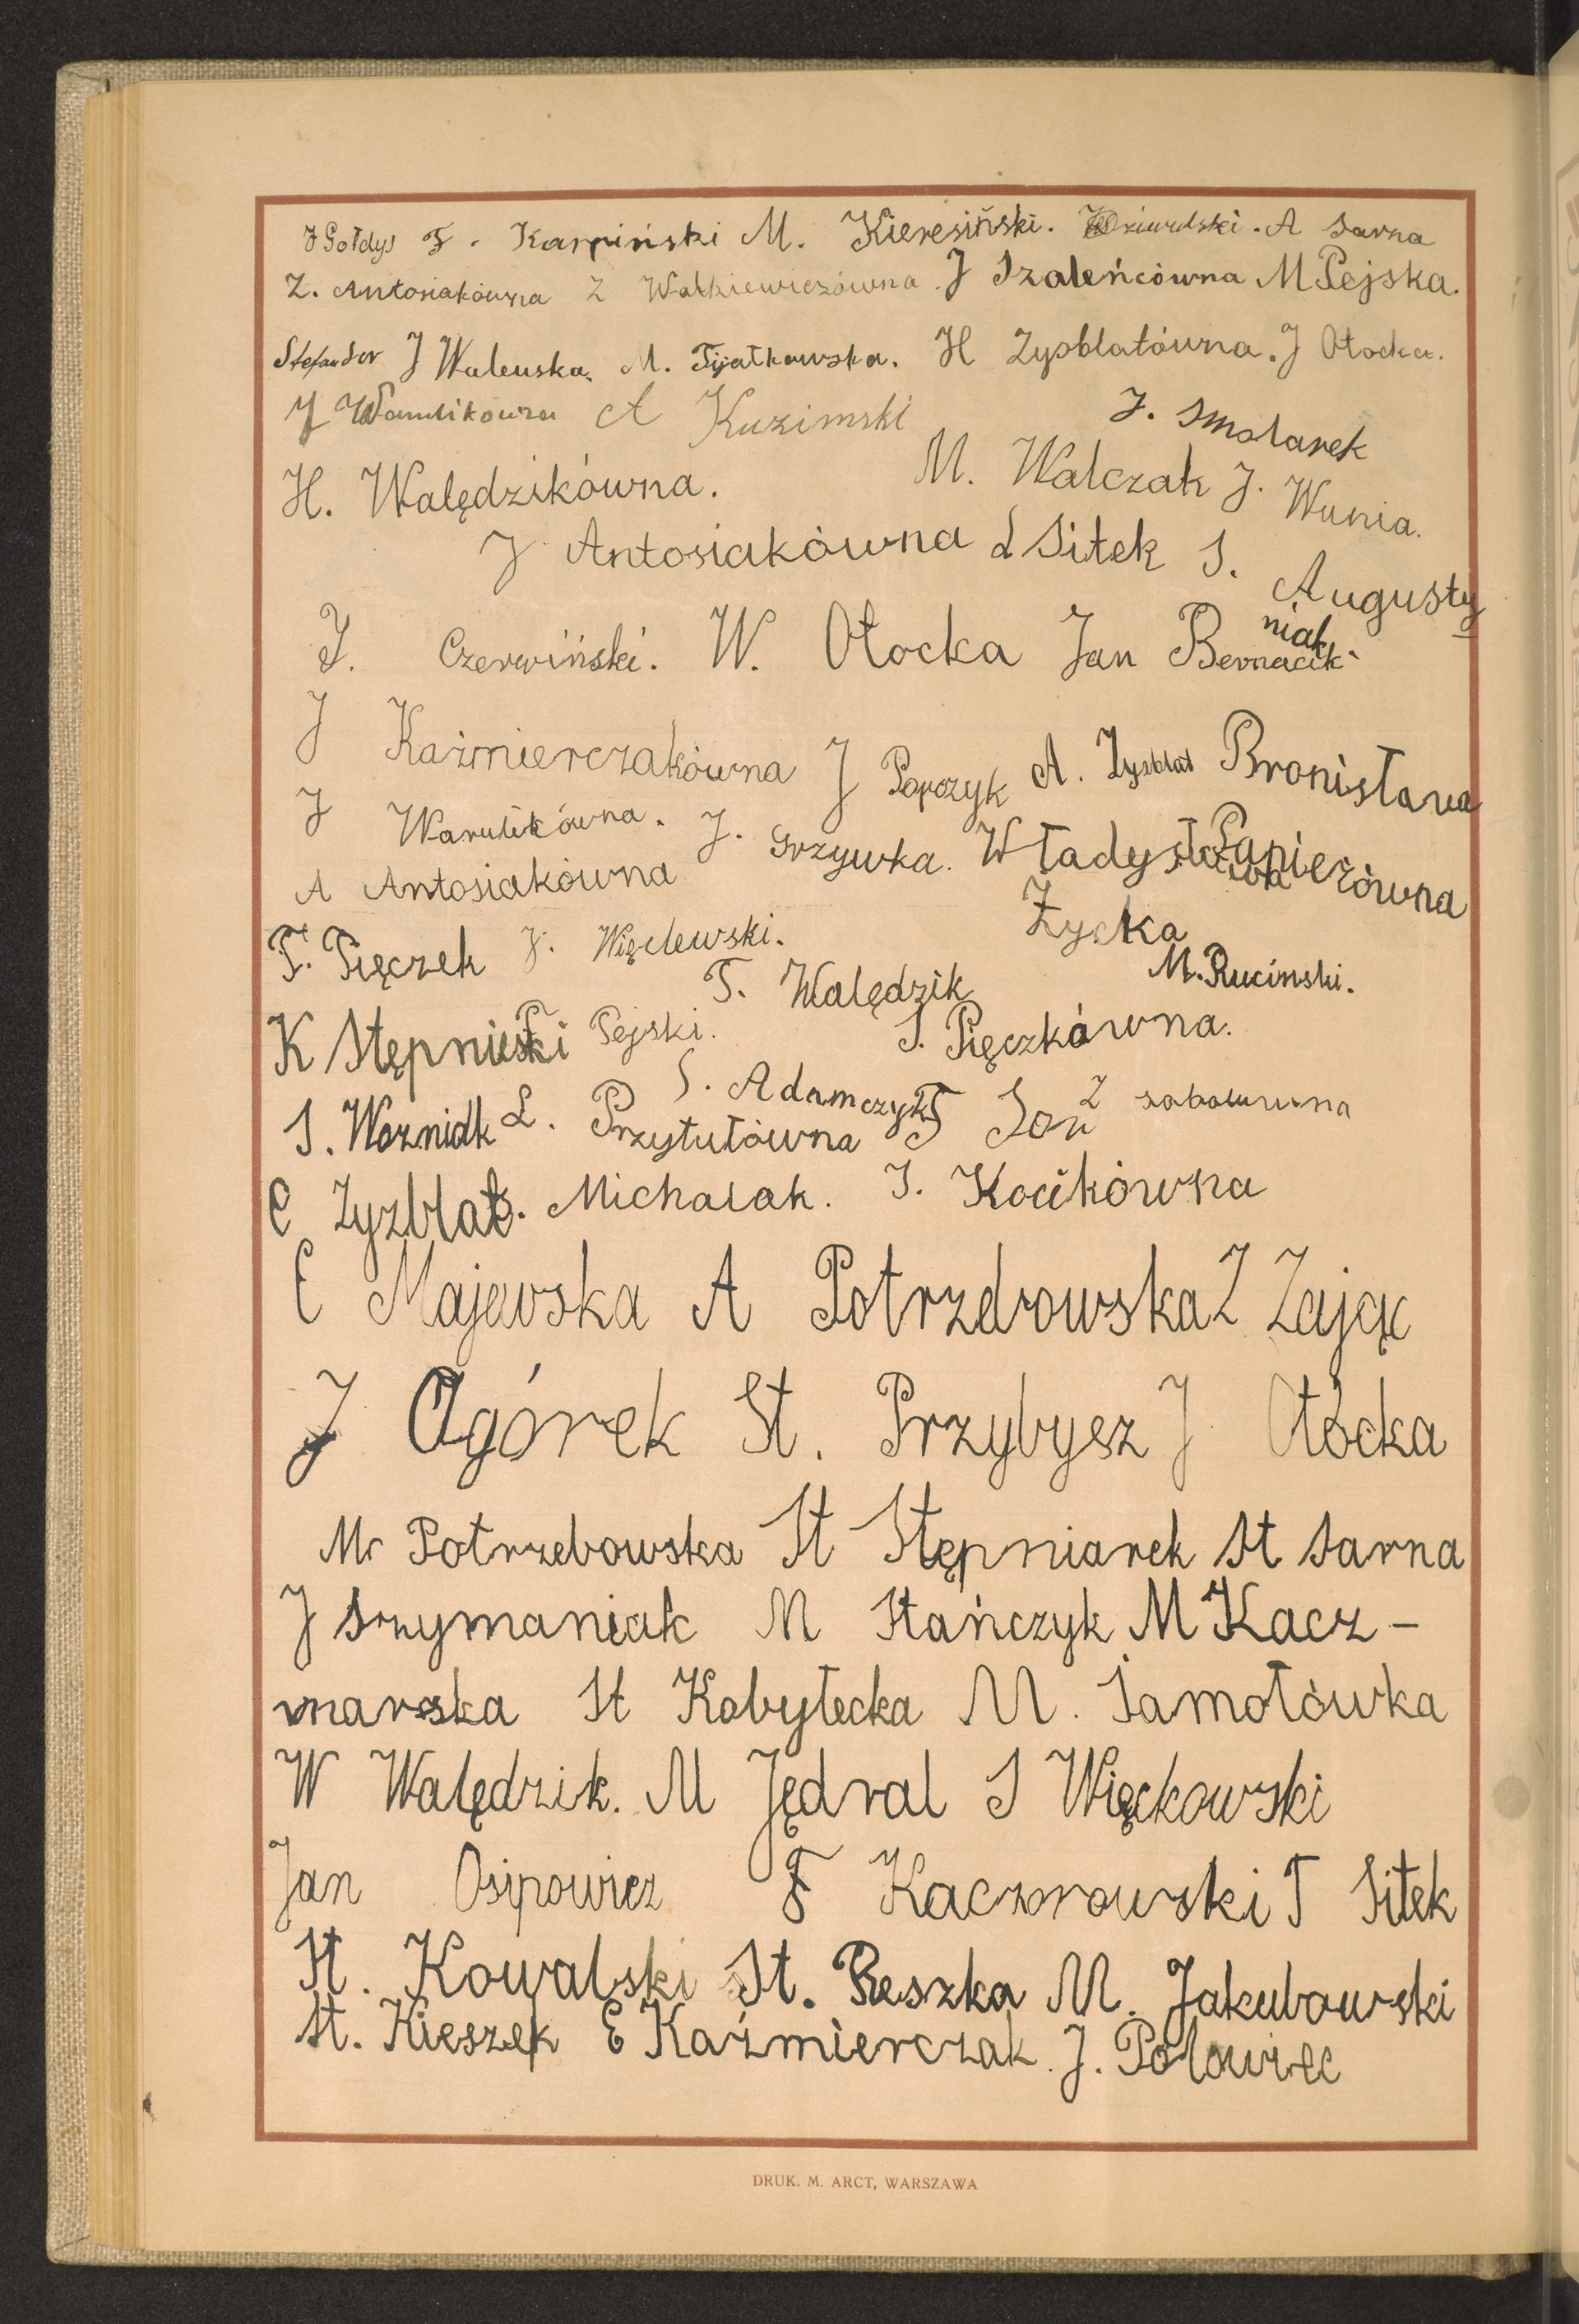 J Gołdys F. Karpiński M. Kieresiński. A Sarna
Z. Antosiakówna Z Walkiewiczówna J Szaleńcówna M Pejska.
Stefan Sor J Walewska. M. Fijałkowska. H Zysblatówna. J Otocka.
J A Kuzimski J. Smolarek
H. Walędzikówna. M. Walczak J. Wunia.
J Antosiakówna L Sitek S. Augusty
niak
J. Czerwiński. W. Otocka Jan Bernacik
J Kaźmierczakówna J Popczyk A. Zysblat Bronisława
J Warulikówna. J. Grzywka. Władysława Papierówna
A Antosiakówna Życka
F. Pięczek J. Więclewski. M. Ruciński.
T. Walędzik
K Stępnieski P Pejski. S. Pięczkówna.
S. Adamczyk
S. Wozniak L. Przytułówna F Son Z
C Zyzblat S. Michalak. J. Kocikówna
E Majewska A Potrzdrowska Z Zając
J Ogórek St. Przybysz J Otócka
M Potrzebowska St Stępniarek St Sarna
J Szymaniak M Stańczyk M Kacz-
marska St Kobyłecka M. Samołówka
W Walędzik. M Jędral S Więckowski
Jan Osipowicz F Kaczorowski T Sitek
St. Kowalski St. Reszka M. Jakubowski
St. Kieszek E Kaźmierczak. J. Polowiec
DRUK. M. ARCT, WARSZAWA